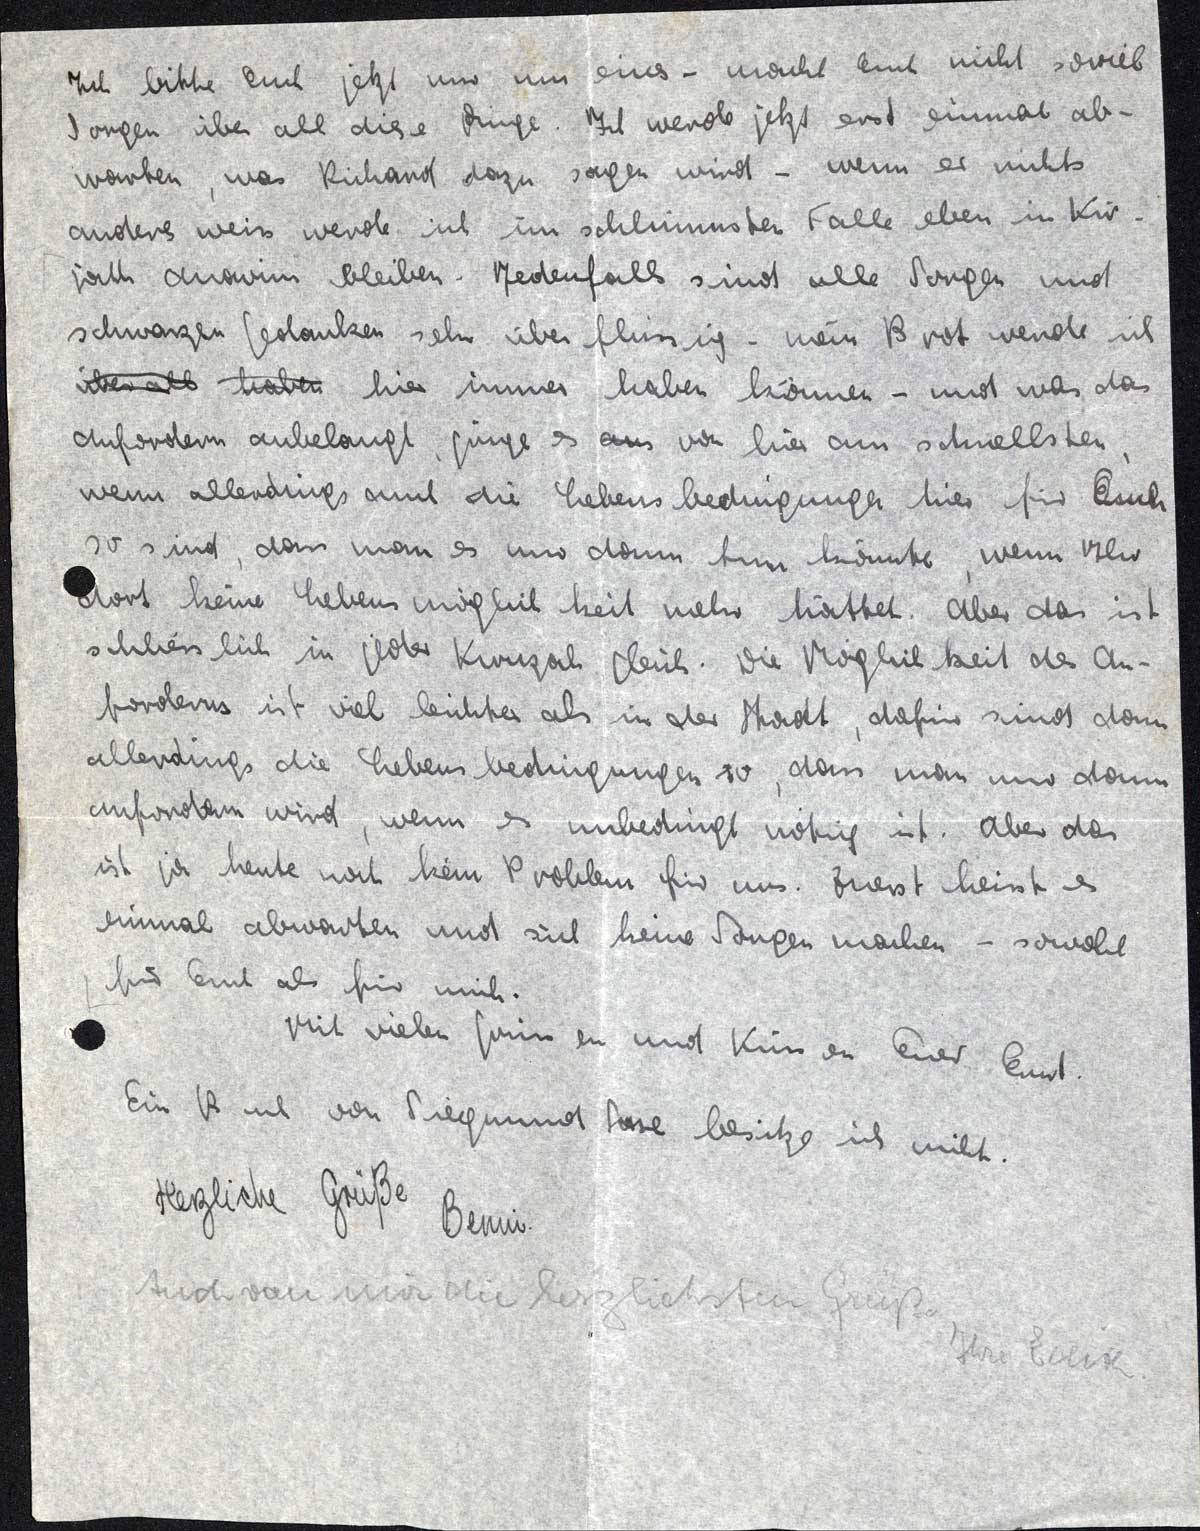 Ich bitte Euch jetzt nur um eines – macht Euch nicht soviel
Sorgen über all diese Dinge. Ich werde jetzt erst einmal ab-
warten, was Richard dazu sagen wird – wenn er nichts
anders weiss werde ich im schlimmsten Falle eben in Kir-
jath Anavim bleiben. Jedenfalls sind alle Sorgen und
schwarzen Gedanken sehr überflüssig – mein Brot werde ich
überall haben hier immer haben können – und was das
Anfordern anbelangt, ginge es aus von hier am schnellsten,
wenn allerdings auch die Lebensbedingungen hier für Euch
so sind, dass man es nur dann tun könnte, wenn Ihr
dort keine Lebensmöglichkeit mehr hättet. Aber das ist
schliesslich in jeder Kwuzah gleich. Die Möglichkeit des An-
forderns ist viel leichter als in der Stadt, dafür sind dann
allerdings die Lebensbedingungen so, dass man nur dann
anfordern wird, wenn es unbedingt nötig ist. Aber das
ist ja heute noch kein Problem für uns. Zuerst heisst es
einmal abwarten und sich keine Sorgen machen – sowohl
für Euch als für mich.
Mit vielen Grüssen und Küssen Euer
Ein von Siegmund besitze ich nicht.
Herzliche Grüße Benni.
Auch von mir die herzlichsten Grüße
Ihre